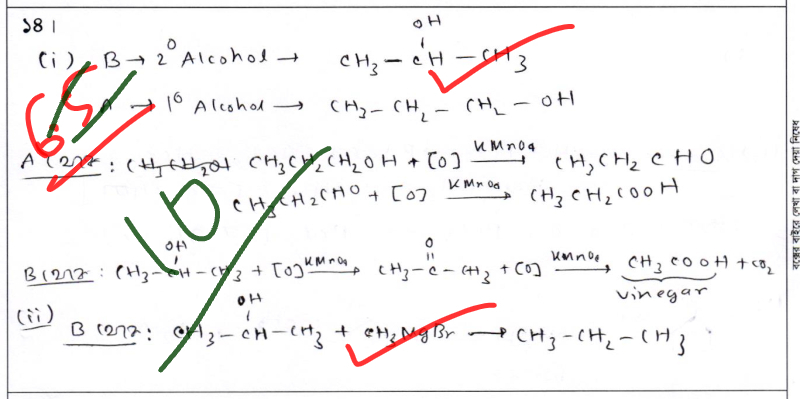 ১৪।
OH
(i) B → 2° Alcohol → CH₃ – CH – CH₃
A → 1° Alcohol → CH₃ – CH₂ – CH₂ – OH
A হতে : CH₃CH₂CH₂OH + [O] KMnO₄→ CH₃CH₂CHO
CH₃CH₂CHO + [O] KMnO₄→ CH₃CH₂COOH
OH O
B হতে : CH₃–CH–CH₃ + [O] KMnO₄→ CH₃–C–CH₃ + [O] KMnO₄→ CH₃COOH + CO₂
vinegar
(ii) OH
B হতে : CH₃–CH–CH₃ + CH₃MgBr → CH₃–CH₂–CH₃
10
বক্সের বাইরে লেখা বা দাগ দেয়া নিষেধ